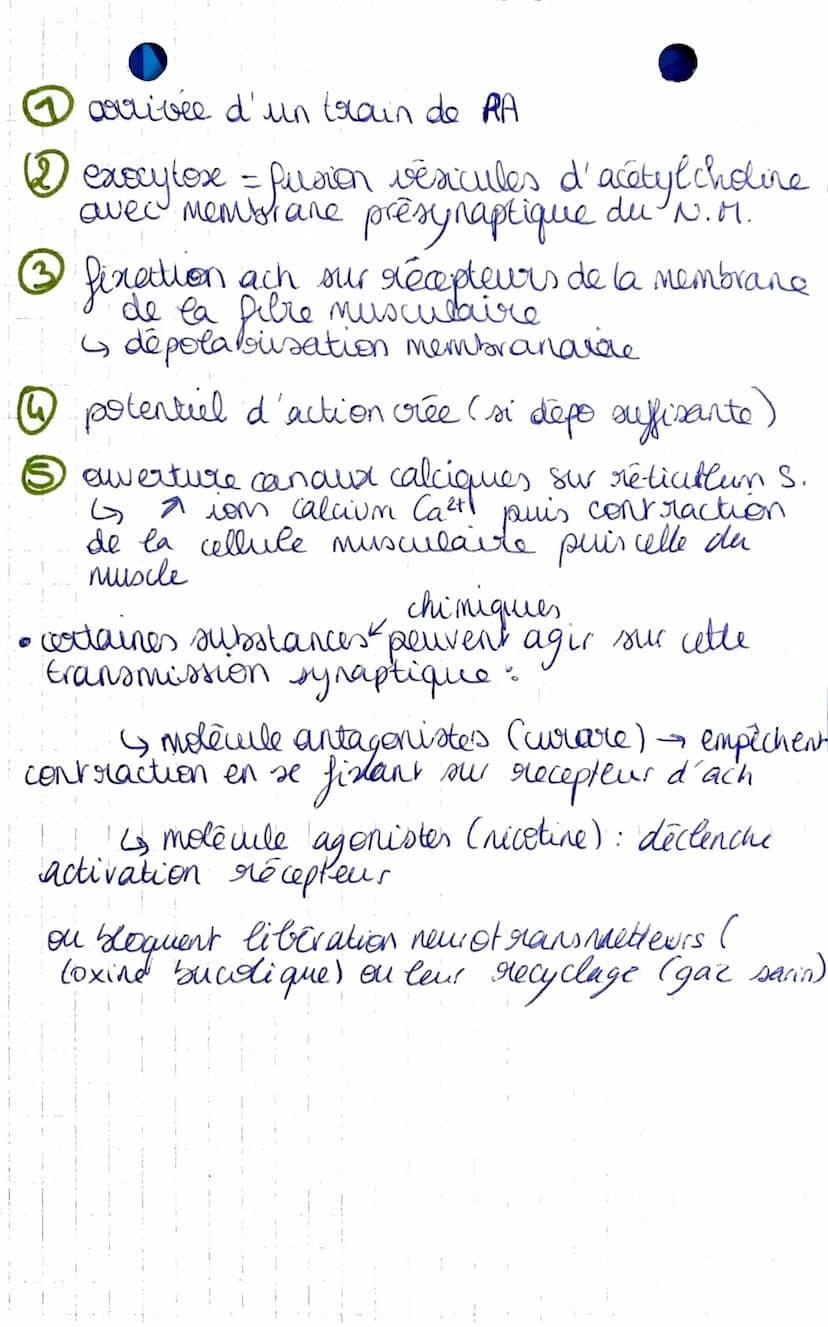 1 arrivée d'un train de PA
2 exocytose = fusion vésicules d'acétylcholine
avec membrane présynaptique du N.M.
3 fixation ach sur récepteurs de la membrane
de la fibre musculaire
↳ dépolarisation membranaire
4 potentiel d'action crée (si dépo suffisante)
5 ouverture canaux calciques sur réticulum S.
↳ ↗ ions calcium Ca²⁺ puis contraction
de la cellule musculaire puis celle du
muscle
chimiques
• certaines substances peuvent agir sur cette
transmission synaptique :
↳ molécule antagonistes (curare) → empêchent
contraction en se fixant sur recepteur d'ach
↳ molécule agonistes (nicotine) : déclenche
activation récepteur
ou bloquent libération neurotransmetteurs (
toxine bucolique) ou leur recyclage (gaz sarin)